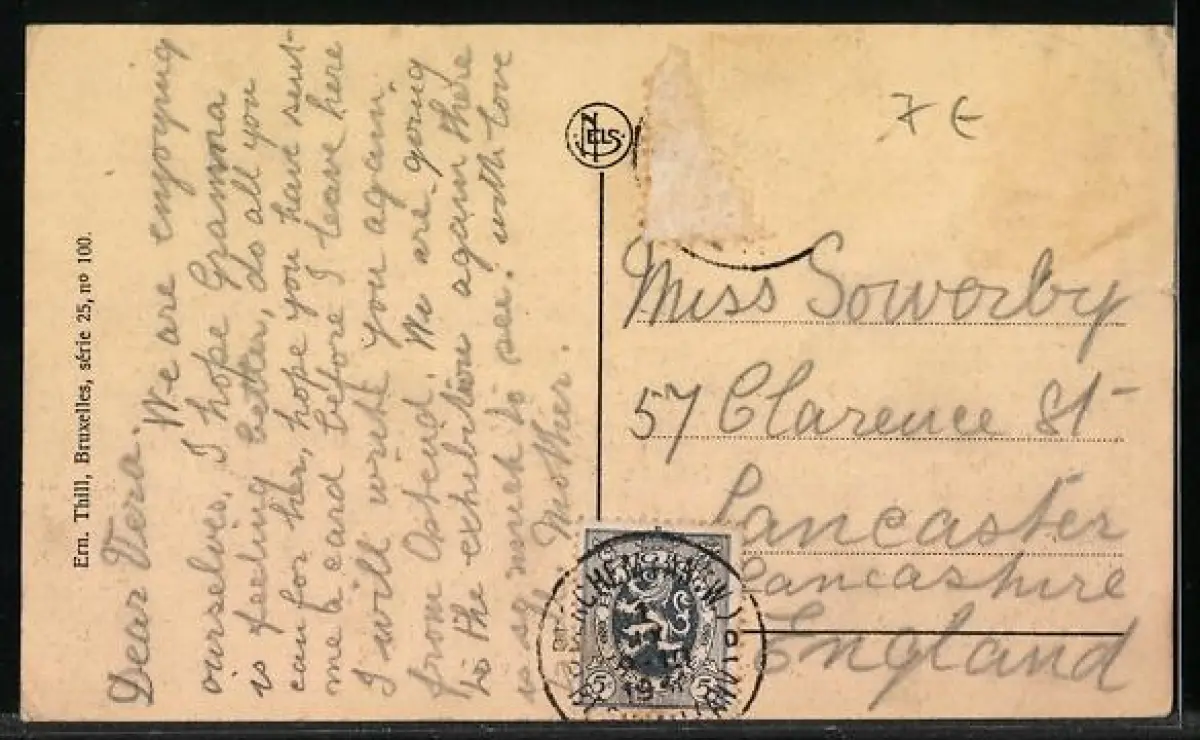 Ern. Thill, Bruxelles, série 25, nº 100.
Dear Vera.
We are enjoying
ourselves. I hope Granma
is feeling better, do all you
can for her, hope you have sent
me a card before I leave here
I will write you again
from Ostend. We are going
to the exhibition again there
is so much to see. with love
Mother.
NELS
7 €
Miss Sowerby
57 Clarence St
Lancaster
Lancashire
England
5 5